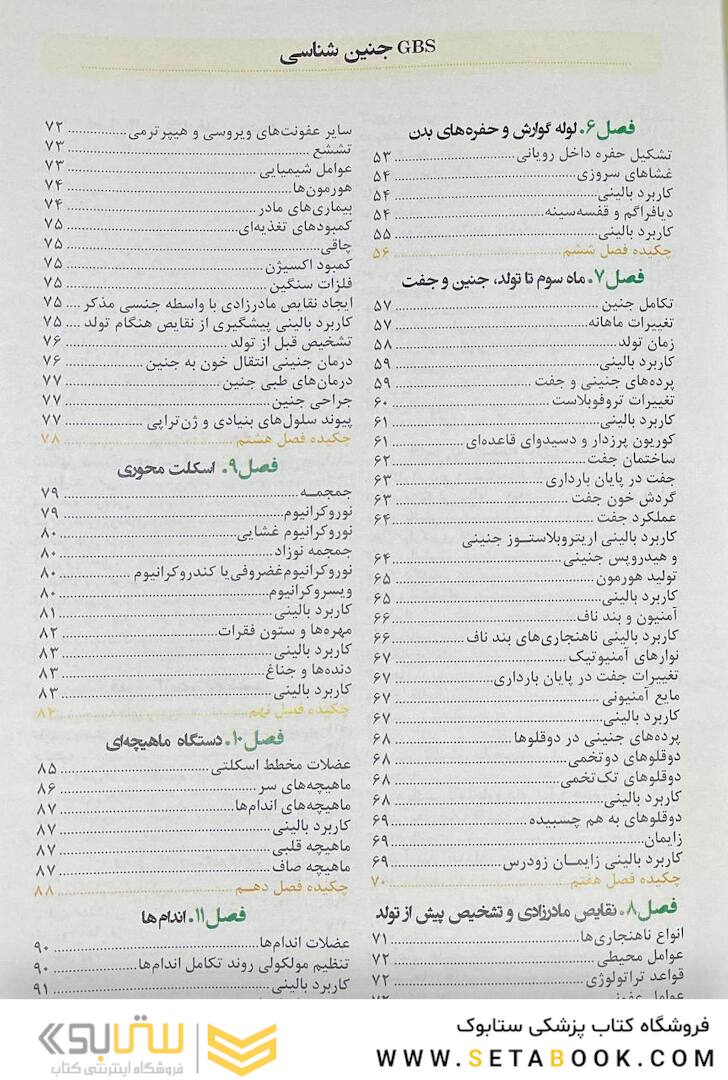 GBS جنین شناسی
فصل۶. لوله گوارش و حفره‌های بدن
تشکیل حفره داخل رویانی ... ۵۳
غشاهای سروزی ... ۵۴
کاربرد بالینی ... ۵۴
دیافراگم و قفسه‌سینه ... ۵۴
کاربرد بالینی ... ۵۵
چکیده فصل ششم ... ۵۶
فصل۷. ماه سوم تا تولد، جنین و جفت
تکامل جنین ... ۵۷
تغییرات ماهانه ... ۵۷
زمان تولد ... ۵۸
کاربرد بالینی ... ۵۹
پرده‌های جنینی و جفت ... ۵۹
تغییرات تروفوبلاست ... ۶۰
کاربرد بالینی ... ۶۱
کوریون پرزدار و دسیدوای قاعده‌ای ... ۶۱
ساختمان جفت ... ۶۲
جفت در پایان بارداری ... ۶۳
گردش خون جفت ... ۶۳
عملکرد جفت ... ۶۴
کاربرد بالینی اریتروبلاستوز جنینی
و هیدروپس جنینی ... ۶۴
تولید هورمون ... ۶۵
کاربرد بالینی ... ۶۵
آمنیون و بند ناف ... ۶۶
کاربرد بالینی ناهنجاری‌های بند ناف ... ۶۶
نوارهای آمنیوتیک ... ۶۷
تغییرات جفت در پایان بارداری ... ۶۷
مایع آمنیونی ... ۶۷
کاربرد بالینی ... ۶۷
پرده‌های جنینی در دوقلوها ... ۶۸
دوقلوهای دوتخمی ... ۶۸
دوقلوهای تک‌تخمی ... ۶۸
کاربرد بالینی ... ۶۸
دوقلوهای به هم چسبیده ... ۶۹
زایمان ... ۶۹
کاربرد بالینی زایمــان زودرس ... ۶۹
چکیده فصل هفتم ... ۷۰
فصل۸. نقایص مادرزادی و تشخیص پیش از تولد
انواع ناهنجاری‌ها ... ۷۱
عوامل محیطی ... ۷۲
قواعد تراتولوژی ... ۷۲
عوامل عفونی ... ۷۲
سایر عفونت‌های ویروسی و هیپرترمی ... ۷۲
تشعشع ... ۷۳
عوامل شیمیایی ... ۷۳
هورمون‌ها ... ۷۴
بیماری‌های مادر ... ۷۴
کمبودهای تغذیه‌ای ... ۷۵
چاقی ... ۷۵
کمبود اکسیژن ... ۷۵
فلزات سنگین ... ۷۵
ایجاد نقایص مادرزادی با واسطه جنسی مذکر ... ۷۵
کاربرد بالینی پیشگیری از نقایص هنگام تولد ... ۷۵
تشخیص قبل از تولد ... ۷۶
درمان جنینی انتقال خون به جنین ... ۷۶
درمان‌های طبی جنین ... ۷۷
جراحی جنین ... ۷۷
پیوند سلول‌های بنیادی و ژن‌تراپی ... ۷۷
چکیده فصل هشتم ... ۷۸
فصل۹. اسکلت محوری
جمجمــه ... ۷۹
نوروکرانیوم ... ۷۹
نوروکرانیوم غشایی ... ۸۰
جمجمه نوزاد ... ۸۰
نوروکرانیوم‌غضروفی‌یا کندروکرانیوم ... ۸۰
ویسروکرانیوم ... ۸۰
کاربرد بالینی ... ۸۱
مهره‌ها و ستون فقرات ... ۸۲
کاربرد بالینی ... ۸۳
دنده‌ها و جناغ ... ۸۳
کاربرد بالینی ... ۸۳
چکیده فصل نهم ... ۸۴
فصل۱۰. دستگاه ماهیچه‌ای
عضلات مخطط اسکلتی ... ۸۵
ماهیچه‌های سر ... ۸۶
ماهیچه‌های اندام‌ها ... ۸۷
کاربرد بالینی ... ۸۷
ماهیچه قلبی ... ۸۷
ماهیچه صاف ... ۸۷
چکیده فصل دهــم ... ۸۸
فصل۱۱. اندام‌ها
عضلات اندام‌ها ... ۹۰
تنظیم مولکولی روند تکامل اندام‌ها ... ۹۰
کاربرد بالینی ... ۹۱
فروشگاه کتاب پزشکی ستابوک
WWW.SETABOOK.COM
ستابوک
فروشگاه اینترنتی کتاب